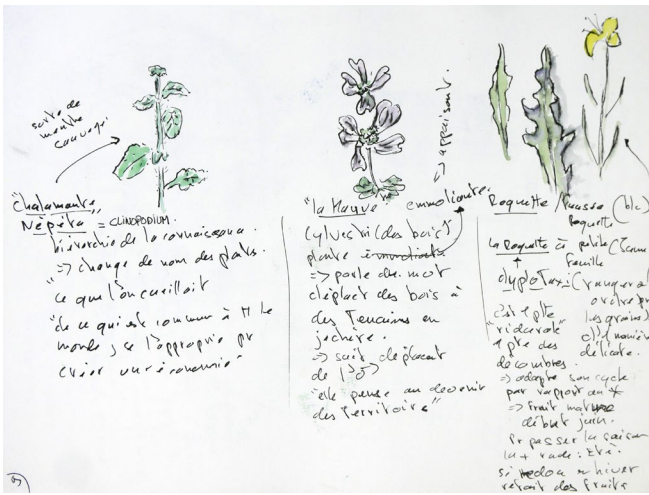 sorte de
menthe
sauvage
"Chalamante
Népéta" = CLINOPODIUM.
hiérarchie de la connaissance
=> change de nom des plats.
"ce que l'on cueillait
"de ce qui est commun à tt le
monde, se l'approprie pr
créer une économie"
"la Mauve"
emmoliante.
<=> appaisant.
Cylvestri (des bois)
plante
=> parle du mot
déplact des bois à
des Terrains en
jachère.
=> suit déplacent
de l'
"elle pense au devenir
des Territoires"
Roquette / Fausse (blc)
Roquette
la Roquette à petite
feuille
dyplotaxi (rangera
ordre
c'est 1 plte les graines)
"ridérale" d'1 manière
1 pte des délicate.
décombres.
=> adapte son cycle
par rapport au
=> fruit mature
début juin.
Pr passer la saison
la + rude : Eté.
si hiver
refait des fruits